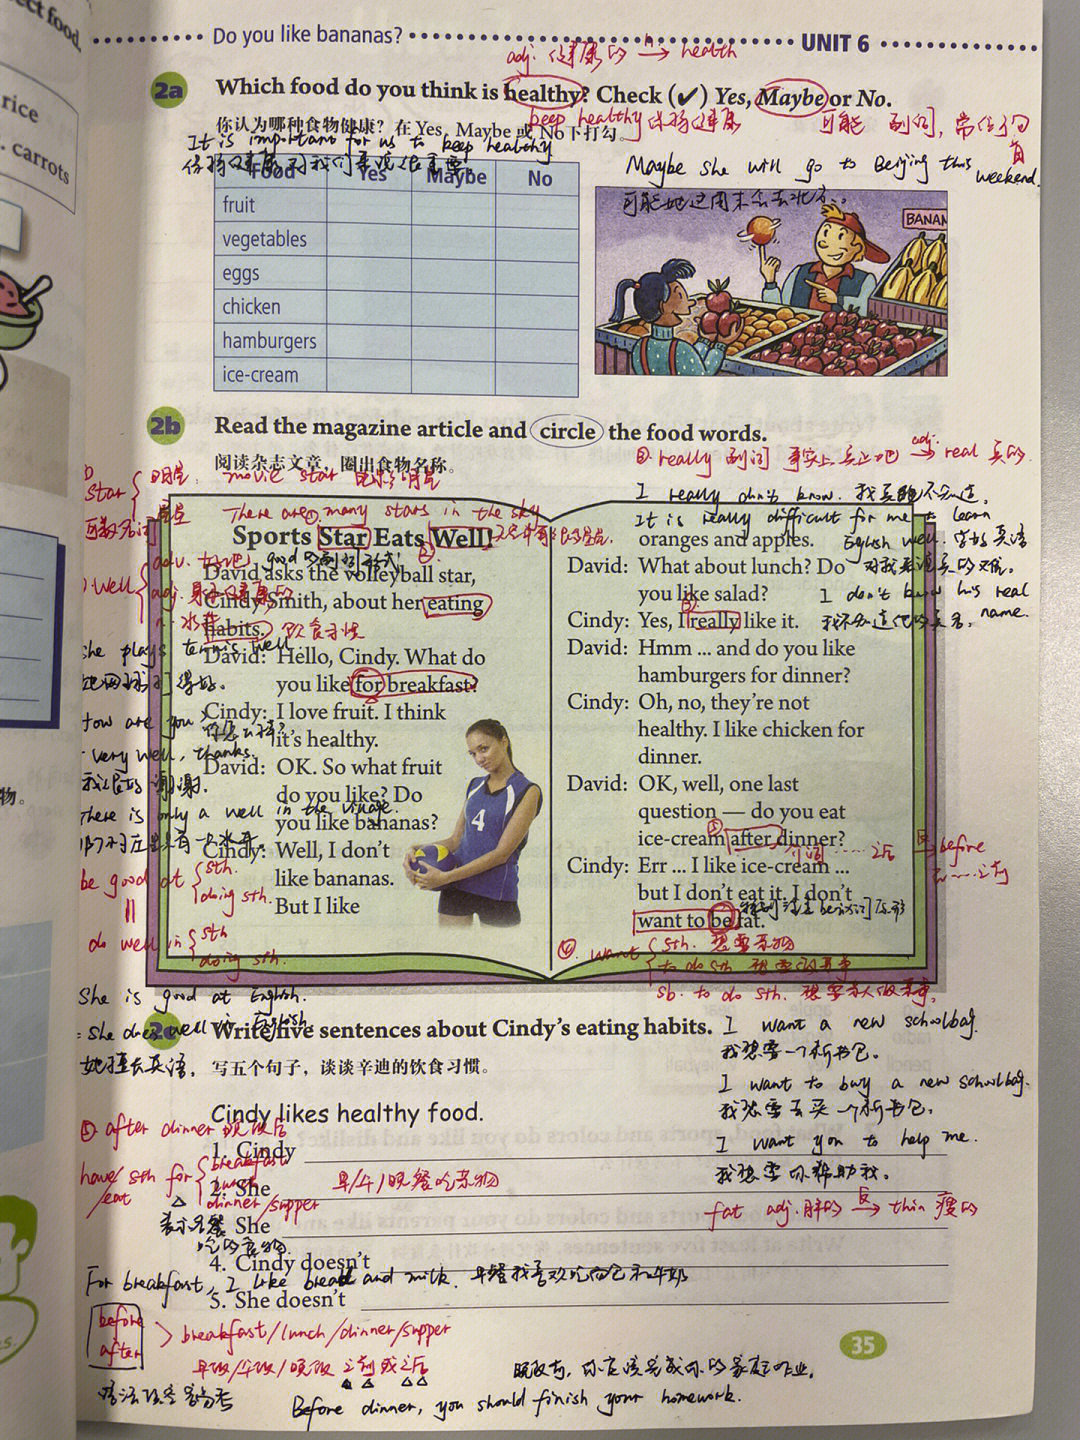 ect food.
rice
carrots
物。
Do you like bananas?
UNIT 6
adj. 健康的 → health
2a Which food do you think is healthy? Check (✓) Yes, Maybe or No.
你认为哪种食物健康？在 Yes, Maybe 或 No下打勾。
keep healthy 保持健康
可能 副词，常位于句首
It is important for us to keep healthy
保持健康对我们来说很重要。
Maybe she will go to Beijing this weekend.
可能她这周末会去北京。
Food Yes Maybe No
fruit
vegetables
eggs
chicken
hamburgers
ice-cream
BANAN
2b Read the magazine article and circle the food words.
阅读杂志文章，圈出食物名称。
③ really 副词 事实上 真正地 adj. → real 真的
star 明星 movie star 电影明星
星星 There are many stars in the sky
可数名词
I really don't know. 我真的不知道。
It is really difficult for me to learn English well. 学好英语
对我来说真的很难。
I don't know his real name.
我不知道他的真名。
Sports Star Eats Well!
well adv. 好地 good的副词形式
adj. 身体健康的
n. 水井
David asks the volleyball star,
Cindy Smith, about her eating
habits. 饮食习惯
David: Hello, Cindy. What do
you like for breakfast?
Cindy: I love fruit. I think
it's healthy.
David: OK. So what fruit
do you like? Do
you like bananas?
Cindy: Well, I don't
like bananas.
But I like
4
oranges and apples.
David: What about lunch? Do
you like salad?
Cindy: Yes, I really like it.
David: Hmm ... and do you like
hamburgers for dinner?
Cindy: Oh, no, they're not
healthy. I like chicken for
dinner.
David: OK, well, one last
question — do you eat
ice-cream after dinner?
Cindy: Err ... I like ice-cream ...
but I don't eat it. I don't
want to be fat.
she plays tennis well.
她网球打得好。
How are you?
你怎么样？
very well, thanks.
我很好 谢谢.
There is only a well in the village.
be good at sth. doing sth.
do well in sth doing sth.
介词 ……之后 反→ before
在……之前
④ want sth. 想要某物
to do sth 想要做某事
sb. to do sth. 想要某人做某事.
She is good at English.
= she does well in English.
她擅长英语.
2c Write five sentences about Cindy's eating habits.
写五个句子，谈谈辛迪的饮食习惯。
I want a new schoolbag.
我想要一个新书包。
I want to buy a new schoolbag.
我想要去买一个新书包。
I want you to help me.
我想要你帮助我。
fat adj. 胖的 反→ thin 瘦的
Cindy likes healthy food.
⑤ after dinner 晚饭后
1. Cindy
2. She
3. She
4. Cindy doesn't
5. She doesn't
have/eat sth for breakfast lunch dinner/supper 早/午/晚餐吃某物
表示名餐
吃的食物.
For breakfast, I like bread and milk. 早餐我喜欢吃面包和牛奶
before
after
breakfast/lunch/dinner/supper
早饭/午饭/晚饭 之前或之后
晚饭前，你应该完成你的家庭作业。
Before dinner, you should finish your homework.
35